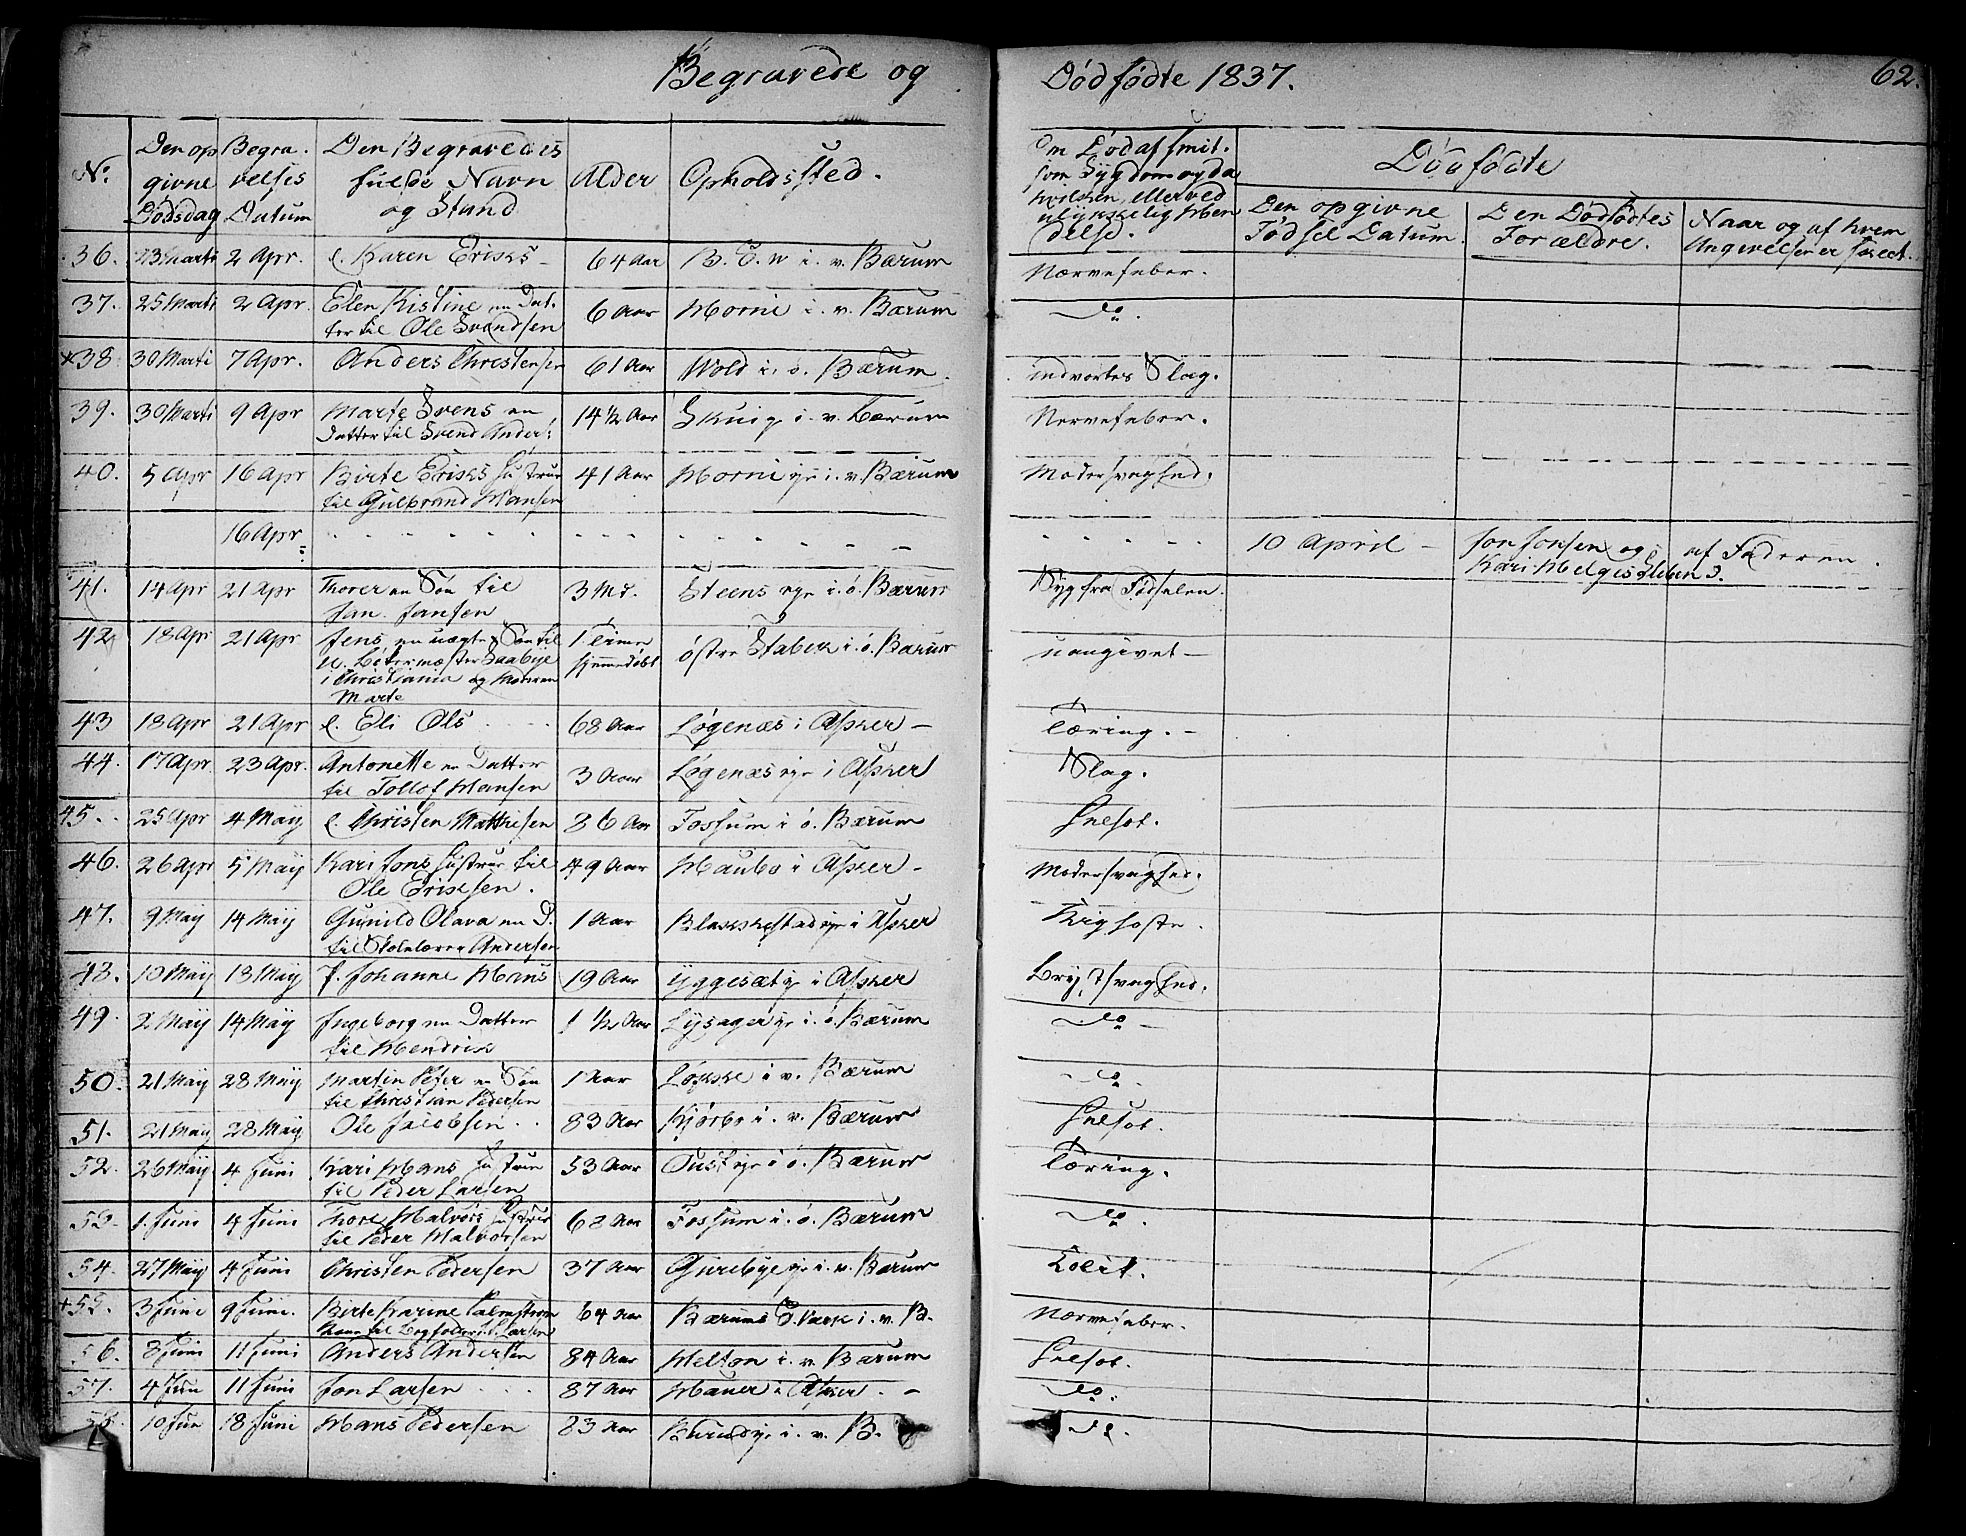 Begravede og Dødfødte 1837. 62.
No. Den op givne Dødsdag Begra. velses Datum Den Begravedes fulde Navn og Stand Alder Opholdssted. Om Død af smit. som Sygdom og da hvilken, eller ved ulykkelig Hen delse. Dødfødte
Den opgivne Fødsel Datum. Den Dødfødtes Forældre. Naar og af hvem Angivelsen er skeet.
36. 23 Marti 2 Apr. e. Karen Eriks 64 Aar B. V. i. v. Bærum Nervefeber.
37. 25 Marti 2 Apr. Elen Kistine en Dat.
ter til Ole Svendsen 6 Aar Horni i. v. Bærum do.
38 30 Marti 7 Apr. Anders Christensen 61 Aar Wold i. ö. Bærum. indvortes Slag.
39. 30 Marti 9 Apr Marte Svens en
Datter til Svend Anders: 14 1/2 Aar Skuig i. v. Bærum Nervefeber.
40. 5 Apr 16 Apr Birte Eriks Hustrue
til Gulbrand Hansen 41 Aar Horni eje i. v. Bærum Modersvaghed.
16 Apr 10 April Jon Jonsen og
Kari Helgis af Faderen.
41. 14 Apr 21 Apr Thorer en Søn til
Jan. Jansen 3 Md. Steens eje i. ö. Bærum Syg fra Fødselen.
42 18 Apr 21 Apr Jens en uægte Søn til
Saabye
i Christiania og Moderen
Marte 1. Time
hjemmedøbt østre Stabek i. ö. Bærum uangivet
43 18 Apr 21 Apr e. Eli Ols 68 Aar Løgenæs i Asker Tæring.
44. 17 Apr 23 Apr. Antonette en Datter
til Tollof Hansen 3 Aar Løgenæs eje i Asker Slag.
45. 25 Apr 4 May e. Christen Mathisen 86 Aar Fossum i ö. Bærum Ælsot.
46. 26 Apr 5 May Kari Jons Hustrue til
Ole Eriksen. 49 Aar Haubo i Asker Modersvaghed.
47. 9 May 14 May Gunild Olava en D.
til Skolelærer Andersen 1 Aar Blakkestad eje i Asker Kighoste.
48. 10 May 13 May P. Johanne Hans 19 Aar yggesæt eje i Asker Brystsvaghed.
49. 2 May 14 May Ingeborg en Datter
til Hendrik 1 1/2 Aar Lysager eje i. ö. Bærum do
50. 21 May 28 May Martin Peter en Søn
til Christian Pedersen 1 Aar Løkke i v. Bærum do
51. 21 May 28 May Ole Jacobsen 83 Aar Kjørbo i. v. Bærum Ælsot.
52. 26 May 4 Juni Kari Hans Hustrue
til Peder Larsen 53 Aar eje i ö. Bærum Tæring.
53. 1. Juni 4 Juni Tore Halvors Hustrue
til Peder Halvorsen 68 Aar Fossum i. ö. Bærum do.
54. 27 May 4 Juni Christen Pedersen 37 Aar eje i. v. Bærum
55. 3 Juni 9 Juni. Birte Karine Palmstrøm
Kone til Larsen 64 Aar Bærums V. i. v. B. Nervefeber.
56. 8 Juni 11 Juni Anders Andersen 84 Aar i. v. Bærum Ælsot.
57. 4 Jun 11 Juni Jon Larsen 87 Aar i Asker. do.
58. 10 Jun 18 Juni Hans Pedersen 83 Aar i. v. B. do.